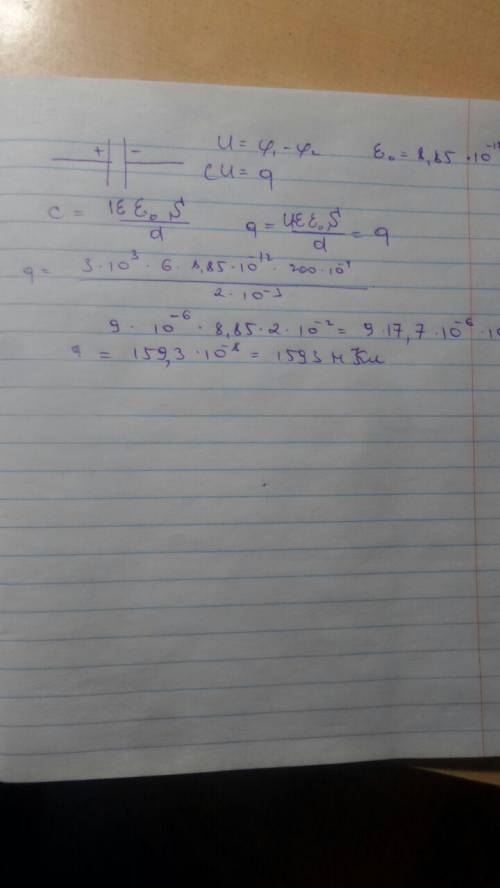 + - U = φ₁ - φ₂ ε₀ = 8,85 · 10⁻¹
CU = q
C = 1εε₀S / d q = Uεε₀S / d = q
q = 3 · 10³ · 6 · 8,85 · 10⁻¹² · 200 · 10⁻⁴ / 2 · 10⁻³
9 · 10⁻⁶ · 8,85 · 2 · 10⁻² = 9 · 17,7 · 10⁻⁶ · 10
q = 159,3 · 10⁻⁸ = 1593 нКл